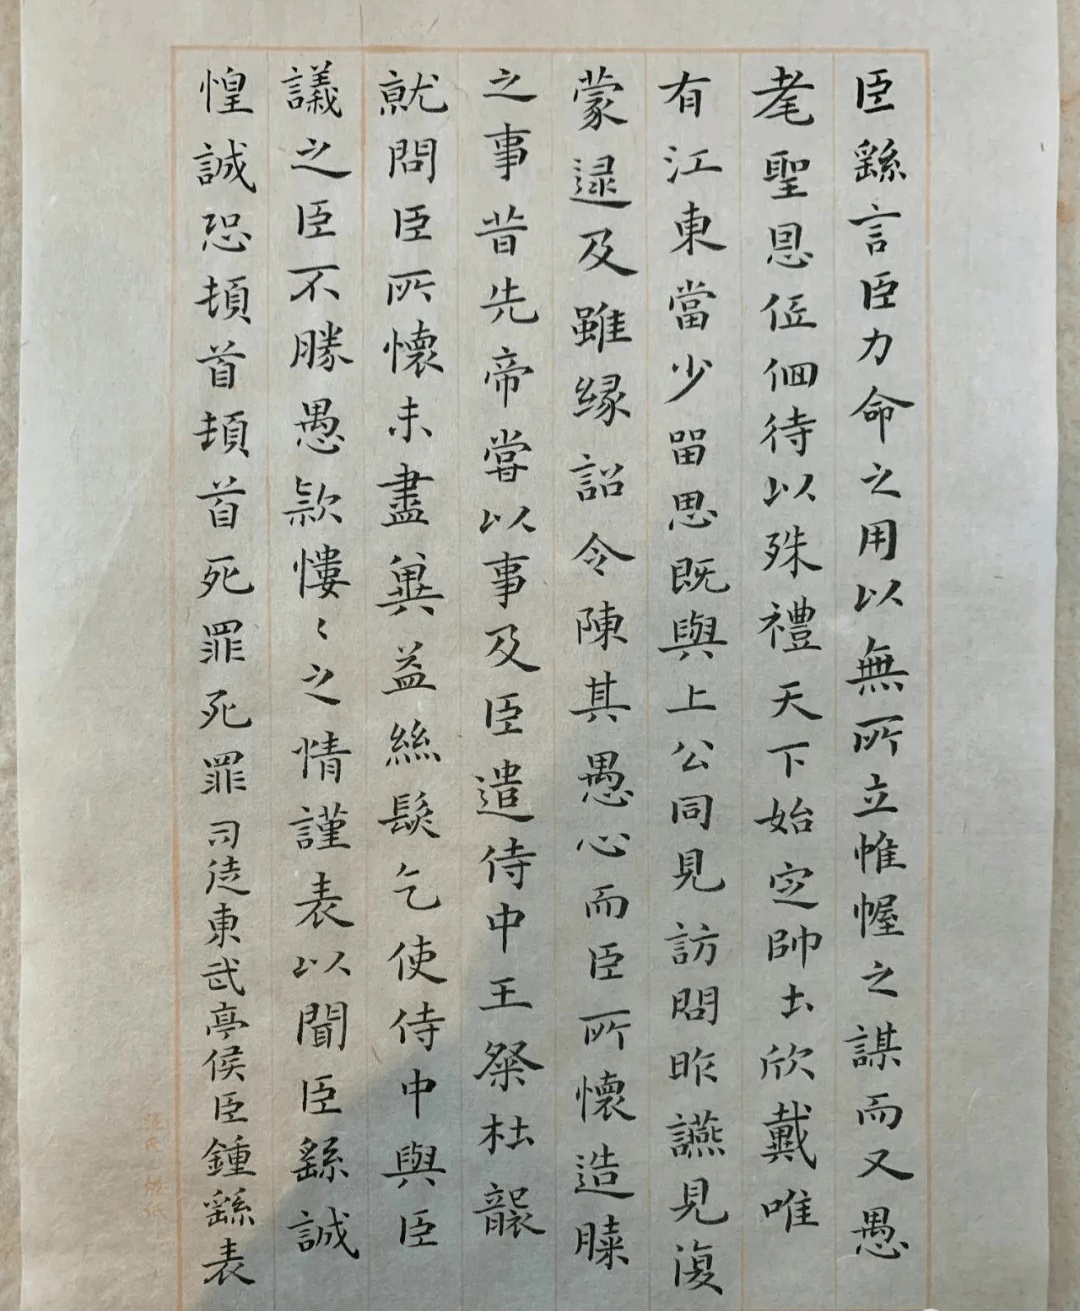 臣繇言臣力命之用以無所立帷幄之謀而又愚
耄聖恩低佪待以殊禮天下始定帥士欣戴唯
有江東當少留思既與上公同見訪問昨讌見復
蒙逮及雖緣詔令陳其愚心而臣所懷造膝
之事昔先帝嘗以事及臣遣侍中王粲杜襲
就問臣所懷未盡冀益絲髮乞使侍中與臣
議之臣不勝愚款慺〻之情謹表以聞臣繇誠
惶誠恐頓首頓首死罪死罪司徒東武亭侯臣鍾繇表